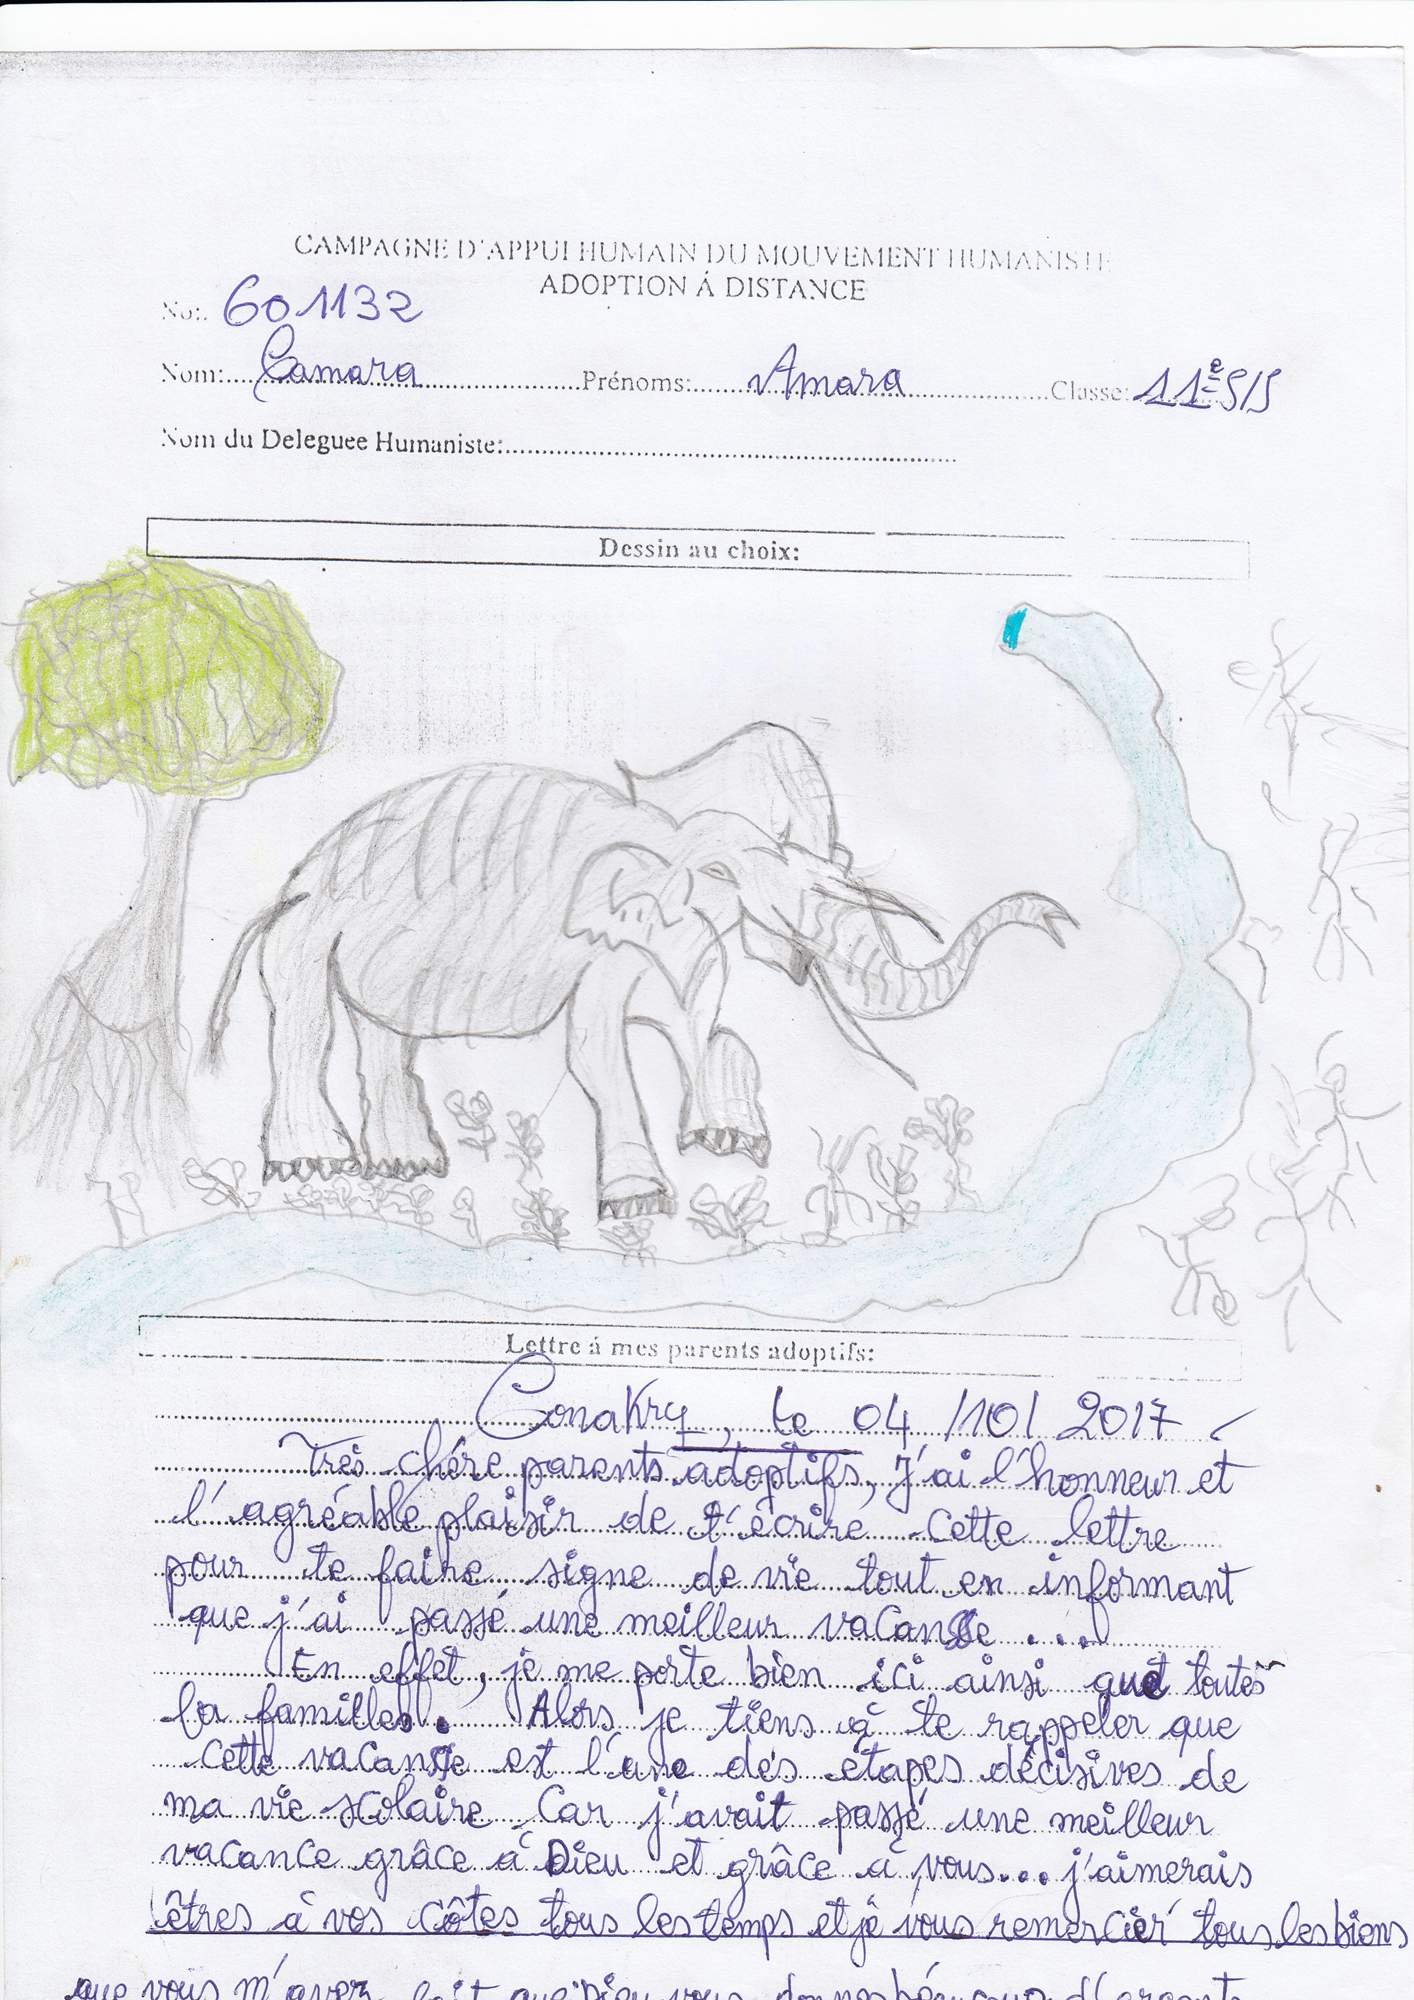 CAMPAGNE D'APPUI HUMAIN DU MOUVEMENT HUMANISTE
ADOPTION Á DISTANCE
No:. 601132
Nom: Camara Prénoms: Amara Classe: 11e SIS
Nom du Deleguee Humaniste:
Dessin au choix:
Lettre á mes parents adoptifs:
Conakry, le 04 /10/ 2017
Très chére parents adoptifs, j'ai l'honneur et
l'agréable plaisir de t'écrire cette lettre
pour te faire signe de vie tout en informant
que j'ai passé une meilleur vacanse ...
En effet, je me porte bien ici ainsi que toutes
la familles. Alors je tiens à te rappeler que
cette vacanse est l'une des étapes décisives de
ma vie scolaire. Car j'avait passé une meilleur
vacance grâce à Dieu et grâce à vous... j'aimerais
êtres à vos côtes tous les temps et je vous remercier tous les biens
que vous m'avez fait que Dieu vous donnes d'argent